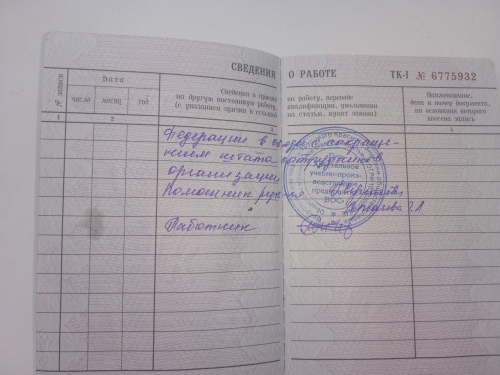 СВЕДЕНИЯ О РАБОТЕ ТК-I № 6775932
№ записи
Дата
число месяц год
Сведения о приеме
на другую постоянную работу,
(с указанием причин и ссылкой
на работу, переводе
квалификации, увольнении
на статью, пункт закона)
Наименование,
дата и номер документа,
на основании которого
внесена запись
1 2 3 4
Федерации в связи с сокраще-
нием штата сотрудников
организации
Помощник рук
Работник
учебно-произ-
водственное
предприятие
ВОС